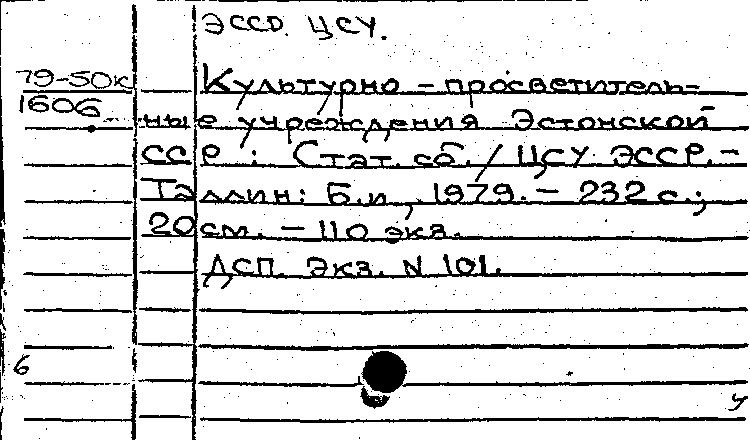 ЭССР. ЦСУ.
79-50к
1606
Культурно-просветитель-
ные учреждения Эстонской
ССР: Стат. сб. / ЦСУ ЭССР. -
Таллин: Б.и., 1979. - 232 с.;
20 см. - 110 экз.
ДСП. Экз. N 101.
6
У